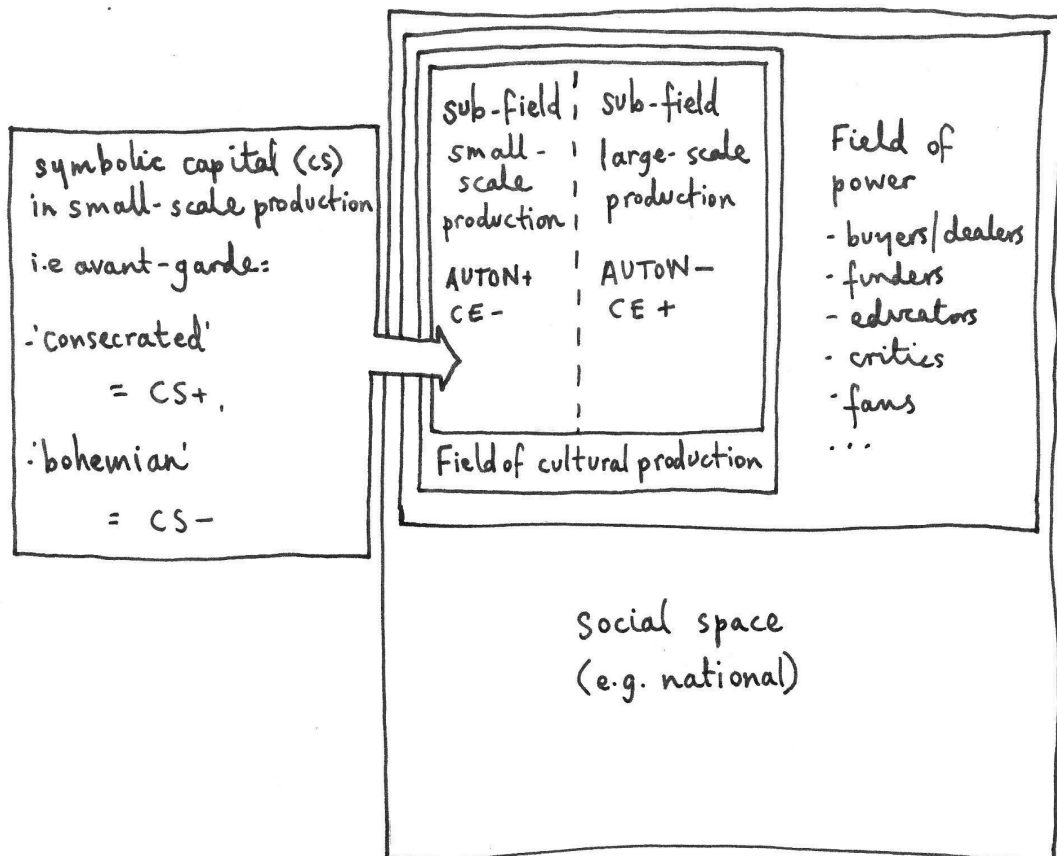 symbolic capital (CS)
in small-scale production
i.e avant-garde:
-'consecrated'
= CS+
-'bohemian'
= CS-
sub-field
small-
scale
production
AUTON+
CE-
sub-field
large-scale
production
AUTON-
CE+
Field of cultural production
Field of
power
- buyers/dealers
- funders
- educators
- critics
- fans
...
Social space
(e.g. national)